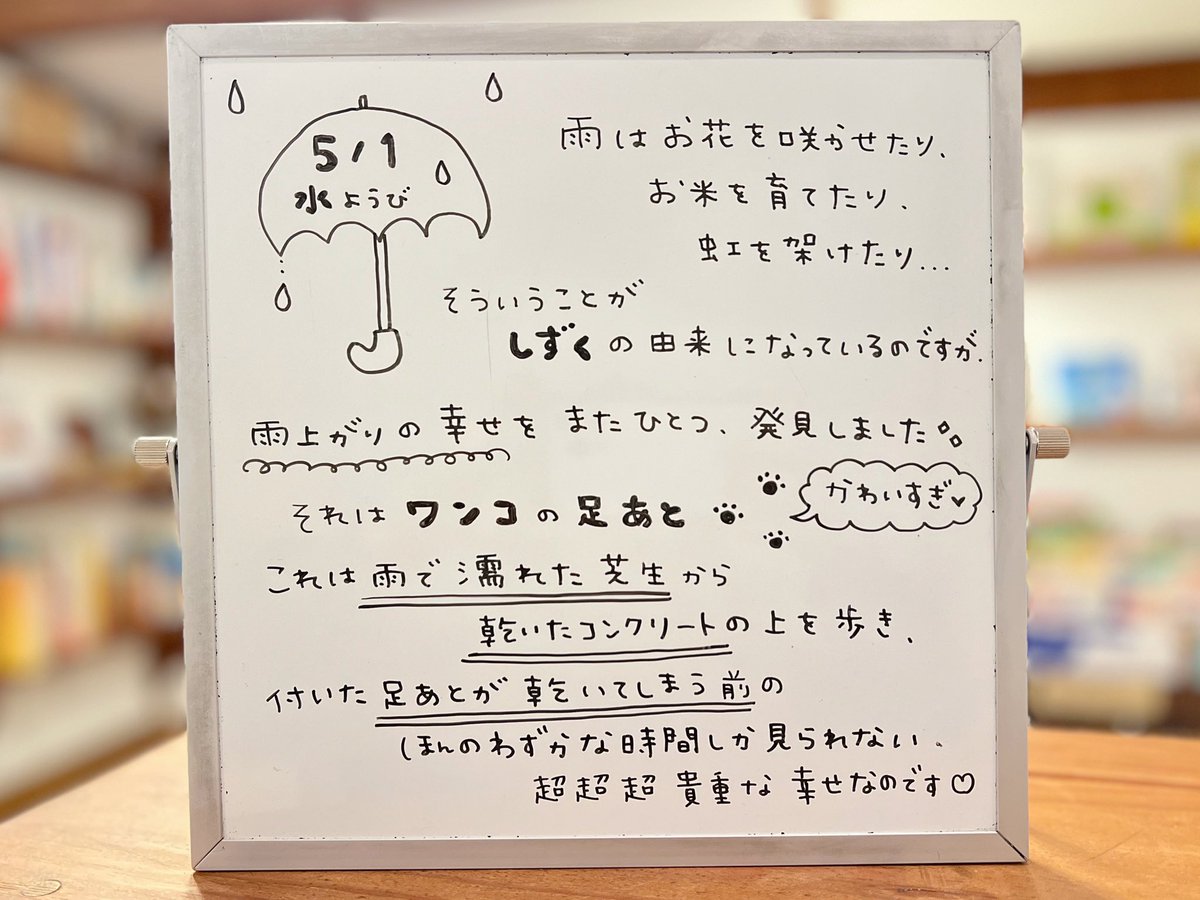 5/1
水ようび
雨はお花を咲かせたり、
お米を育てたり、
虹を架けたり...
そういうことが
しずくの由来になっているのですが、
雨上がりの幸せをまたひとつ、発見しました
それはワンコの足あと
かわいすぎ♥
これは雨で濡れた芝生から
乾いたコンクリートの上を歩き、
付いた足あとが乾いてしまう前の
ほんのわずかな時間しか見られない、
超超超貴重な幸せなのです♡